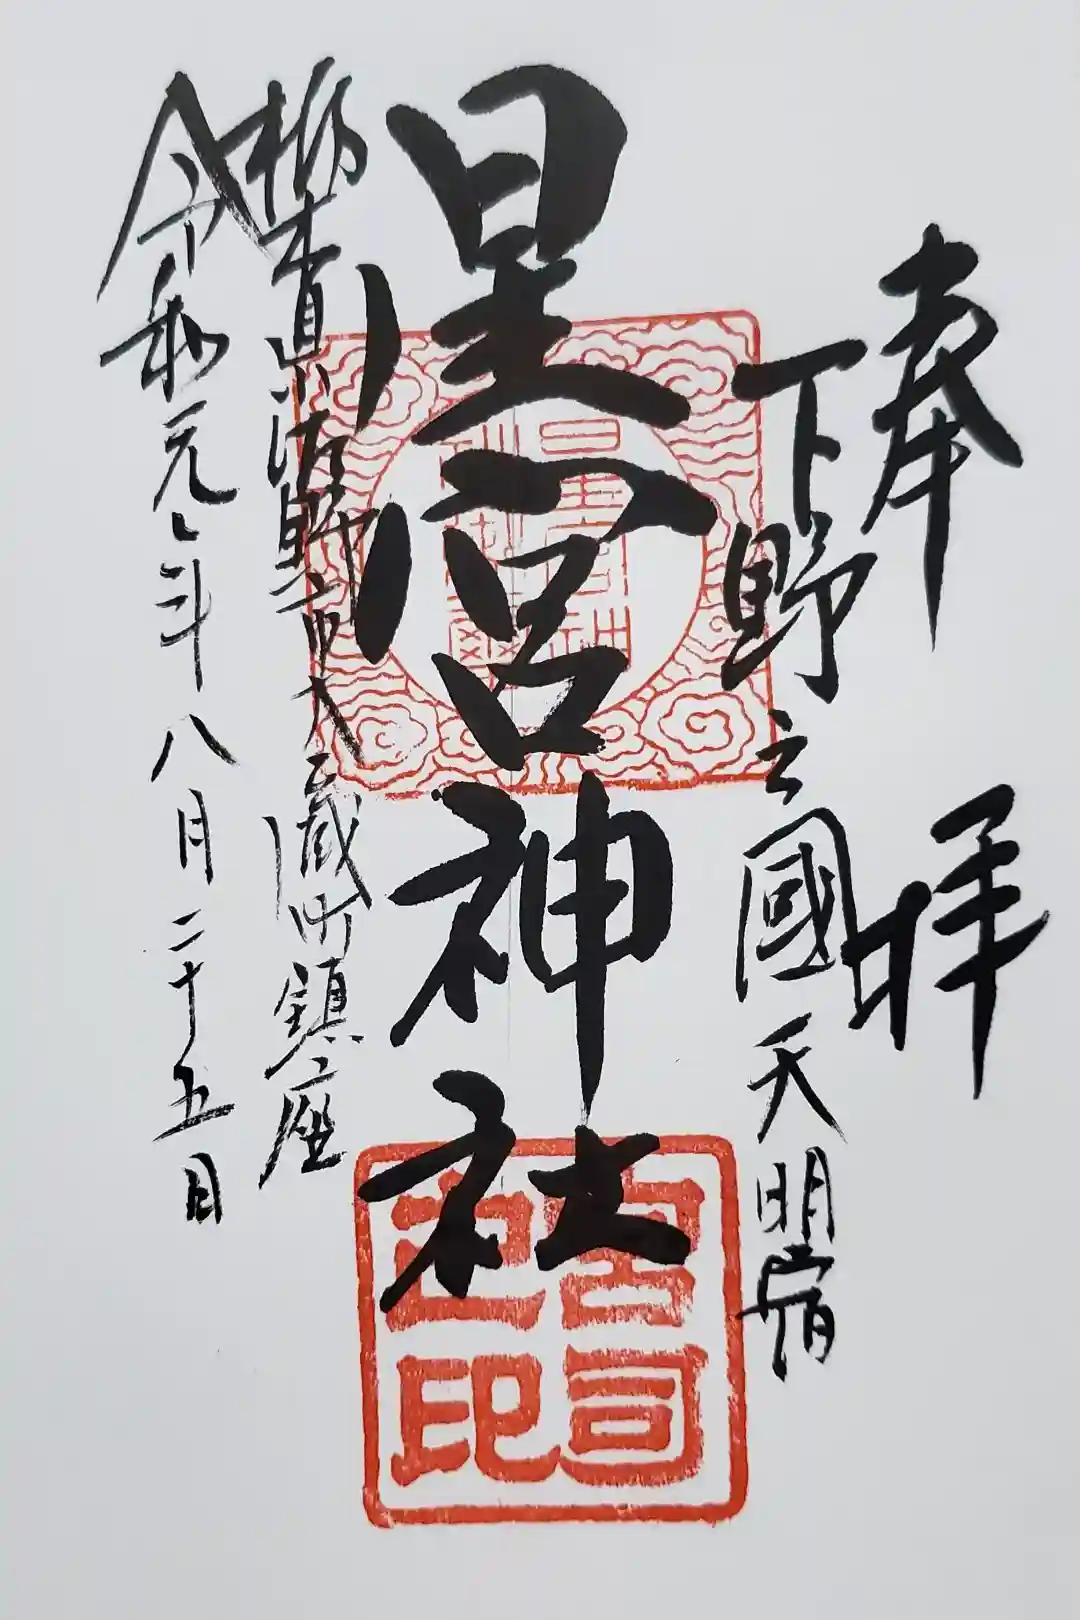 奉拝
下野之國天明宿
星宮神社
栃木県佐野市大蔵町鎮座
令和元年八月二十五日
宮司之印